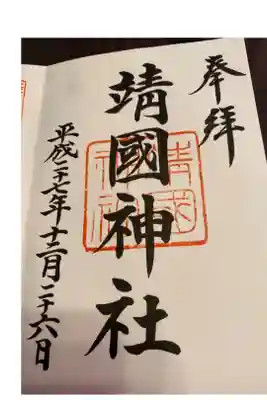 奉拝
靖國神社
平成二十七年十二月二十六日